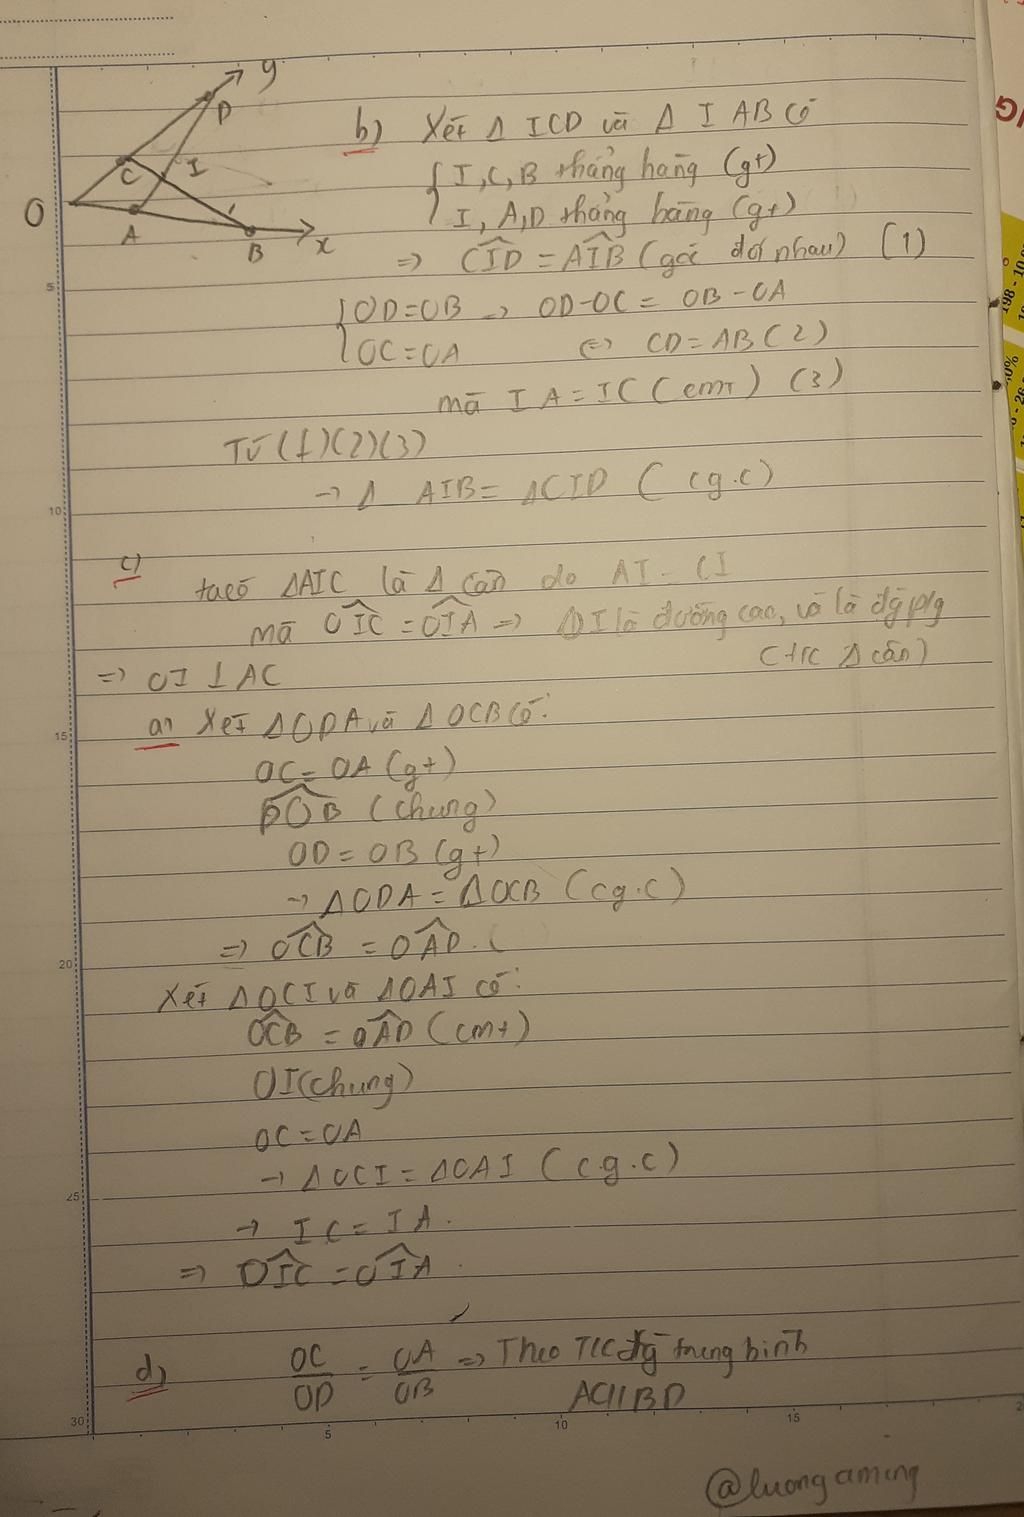 y
D
C
I
O
A
B
x
b) Xét Δ ICD và Δ I AB có
I, C, B thẳng hàng (gt)
I, A, D thẳng hàng (gt)
=> CID = AIB (góc đối nhau) (1)
OD = OB => OD - OC = OB - OA
OC = OA <=> CD = AB (2)
mà IA = IC (cmt) (3)
Từ (1)(2)(3)
-> Δ AIB = ΔCID (cg.c)
c)
ta có ΔAIC là Δ cân do AI = CI
mà OIC = OIA => OI là đường cao, và là đg p/g
(t/c Δ cân)
=> OI ⊥ AC
a, Xét ΔODA và ΔOCB có:
OC = OA (gt)
DOB (chung)
OD = OB (gt)
-> ΔODA = ΔOCB (cg.c)
=> OCB = OAD. (
Xét ΔOCI và ΔOAI có:
OCB = OAD (cmt)
OI (chung)
OC = OA
-> ΔOCI = ΔOAI (c.g.c)
-> IC = IA.
=> OIC = OIA.
d) OC/OD = OA/OB => Theo T/C đg trung bình
AC // BD
@luongaming
5
10
15
20
25
30
5
10
15
198 - 10.0